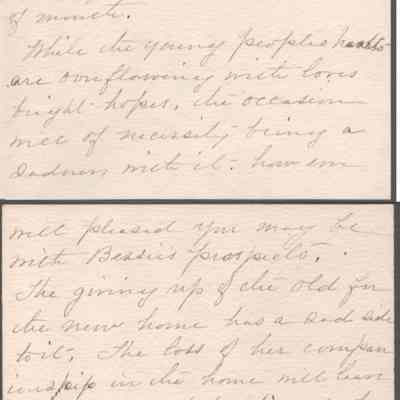 of
While the young peoples hearts
are overflowing with loves
bright hopes, the occasion
will of necessity bring a
sadness with it. how ever
well pleased you may be
with Bessie's prospects.
The giving up of the old for
the new home has a sad side
to it. The loss of her compan
ionship in the home will leave